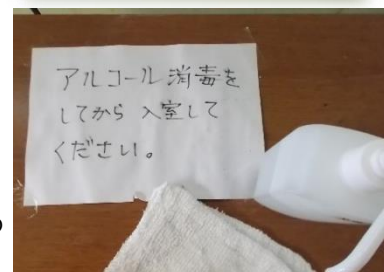 アルコール消毒を
してから入室して
ください。